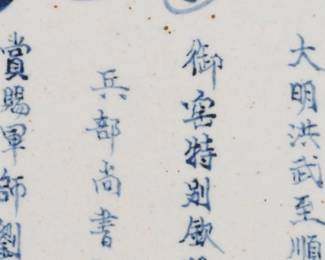 大明洪武至順
御窑特別欽
兵部尚書
賞賜軍師劉